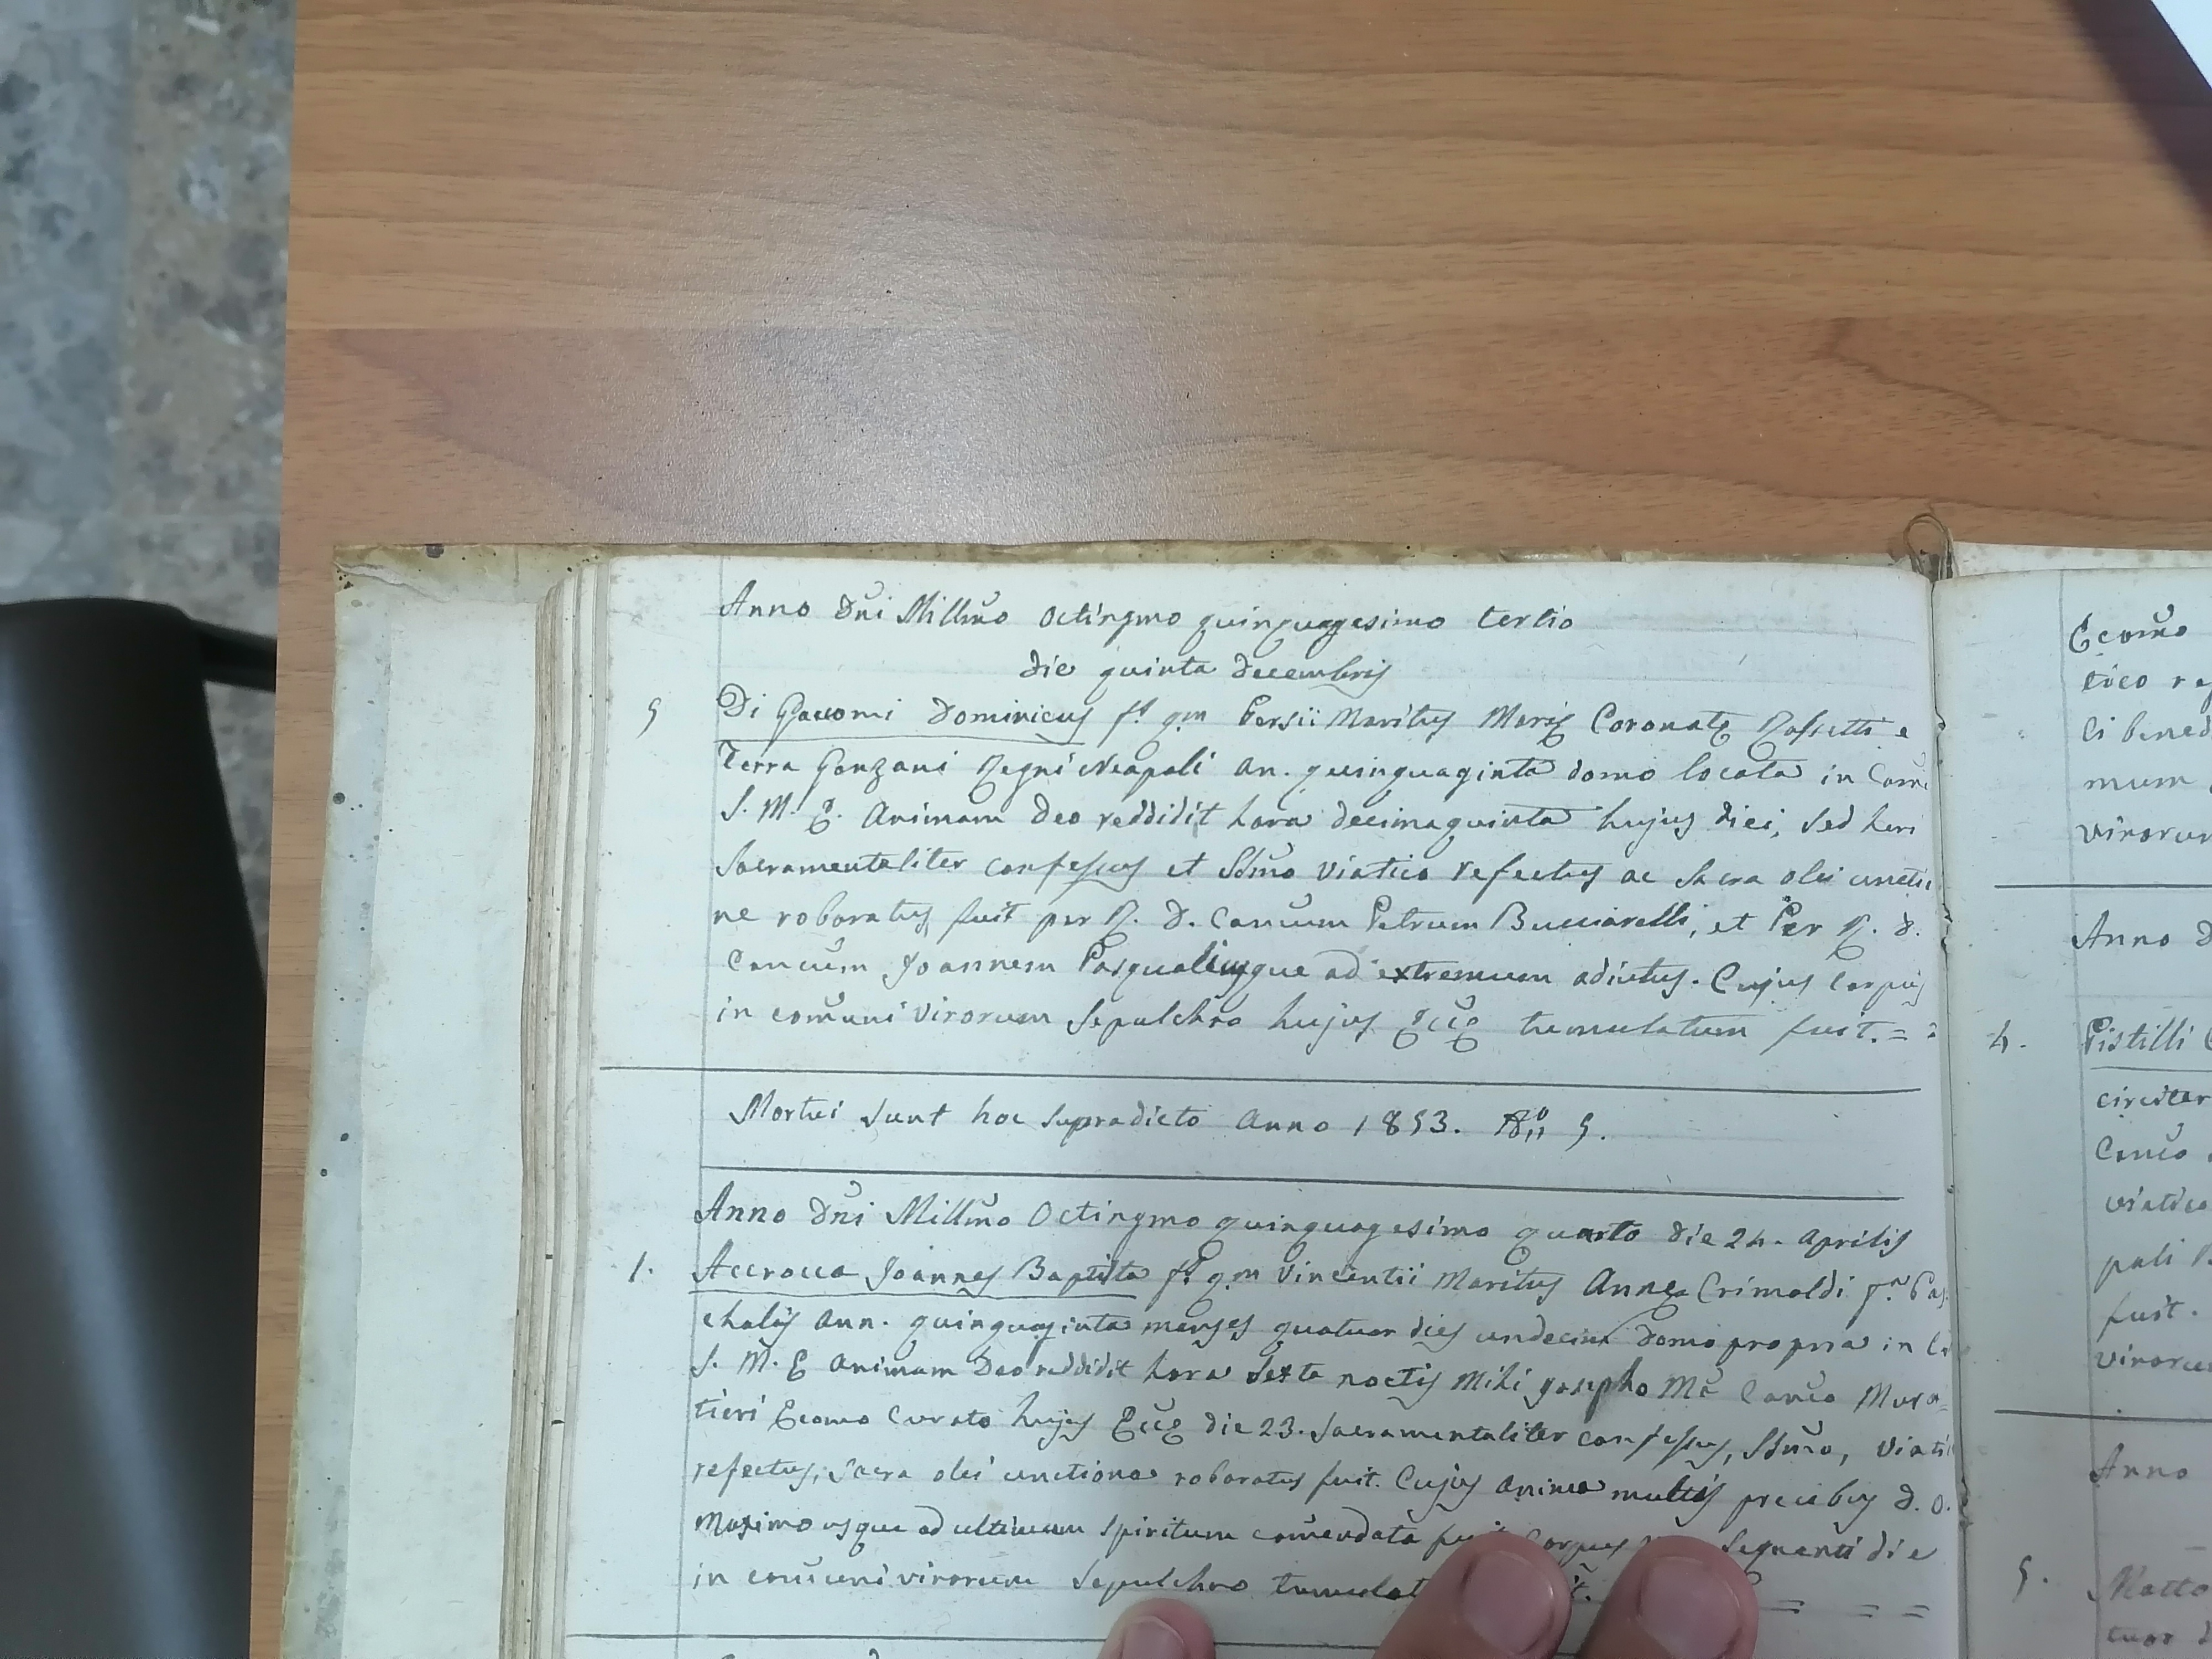 Anno Dñi Millmo Octingmo quinquagesimo tertio
die quinta decembris
5 Di Giacomi Dominicus fs qm Persii Maritus Mariæ Coronatæ Rossetti e
Terra Gonzani Regni Neapoli an. quinquaginta domo locata in
S. M. E. Animam Deo reddidit hora decimaquinta hujus diei, sed heri
Sacramentaliter confessus et SSmo Viatico refectus ac Sacra olei unctio
ne roboratus fuit per R. D. Canćum Petrum Bucciarelli, et Per R. D.
Canćum Joannem ad extremum adiutus. Cujus Corpus
in comuni Virorum Sepulchro hujus Eccæ tumulatum fuit. =
Mortui sunt hoc supradicto Anno 1853. No 5.
Anno Dñi Millmo Octingmo quinquagesimo quarto die 24. Aprilis
1. Accrocca Joannes Baptista fs qm Vincentii Maritus Annæ Crimaldi
chalis Ann. quinquaginta menses quatuor dies undecim domo propria in
S. M. E Animam Deo reddidit hora sexta noctis Mihi Josepho Ma Canco Mura=
tieri Econo Curato hujus Eccæ die 23. Sacramentaliter confessus, SSmo, Viati
refectus, Sacra olei unctione roboratus fuit. Cujus Anima multis precibus D. O.
Maximo usque ad ultimum Spiritum comendata Corpus Sequenti die
in comuni virorum Sepulchro = = =
Econo
tico
li bened
mum
virorum
Anno D
4. Pistilli
circiter
Canco
viatico
fuit.
Anno
5. Matto
tuor